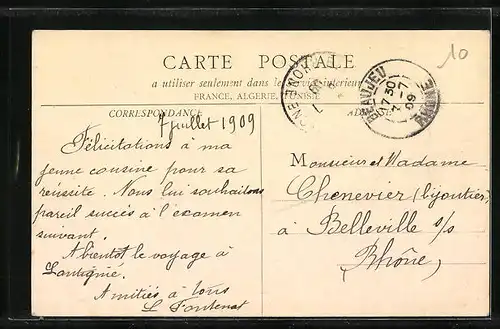 10
CARTE POSTALE
a utiliser seulement dans le service interieur
FRANCE, ALGERIE, TUNISIE
CORRESPONDANCE
7 juillet 1909
Félicitations à ma
jeune cousine pour sa
réussite. Nous lui souhaitons
pareil succès à l'examen
suivant.
A bientôt le voyage à
Lantignié.
Amitiés à tous
L Fontenat
BEAUJEU
17 30
7 -7
09
RHONE
Monsieur et Madame
Chenevier (bijoutier)
à Belleville s/s
Rhône